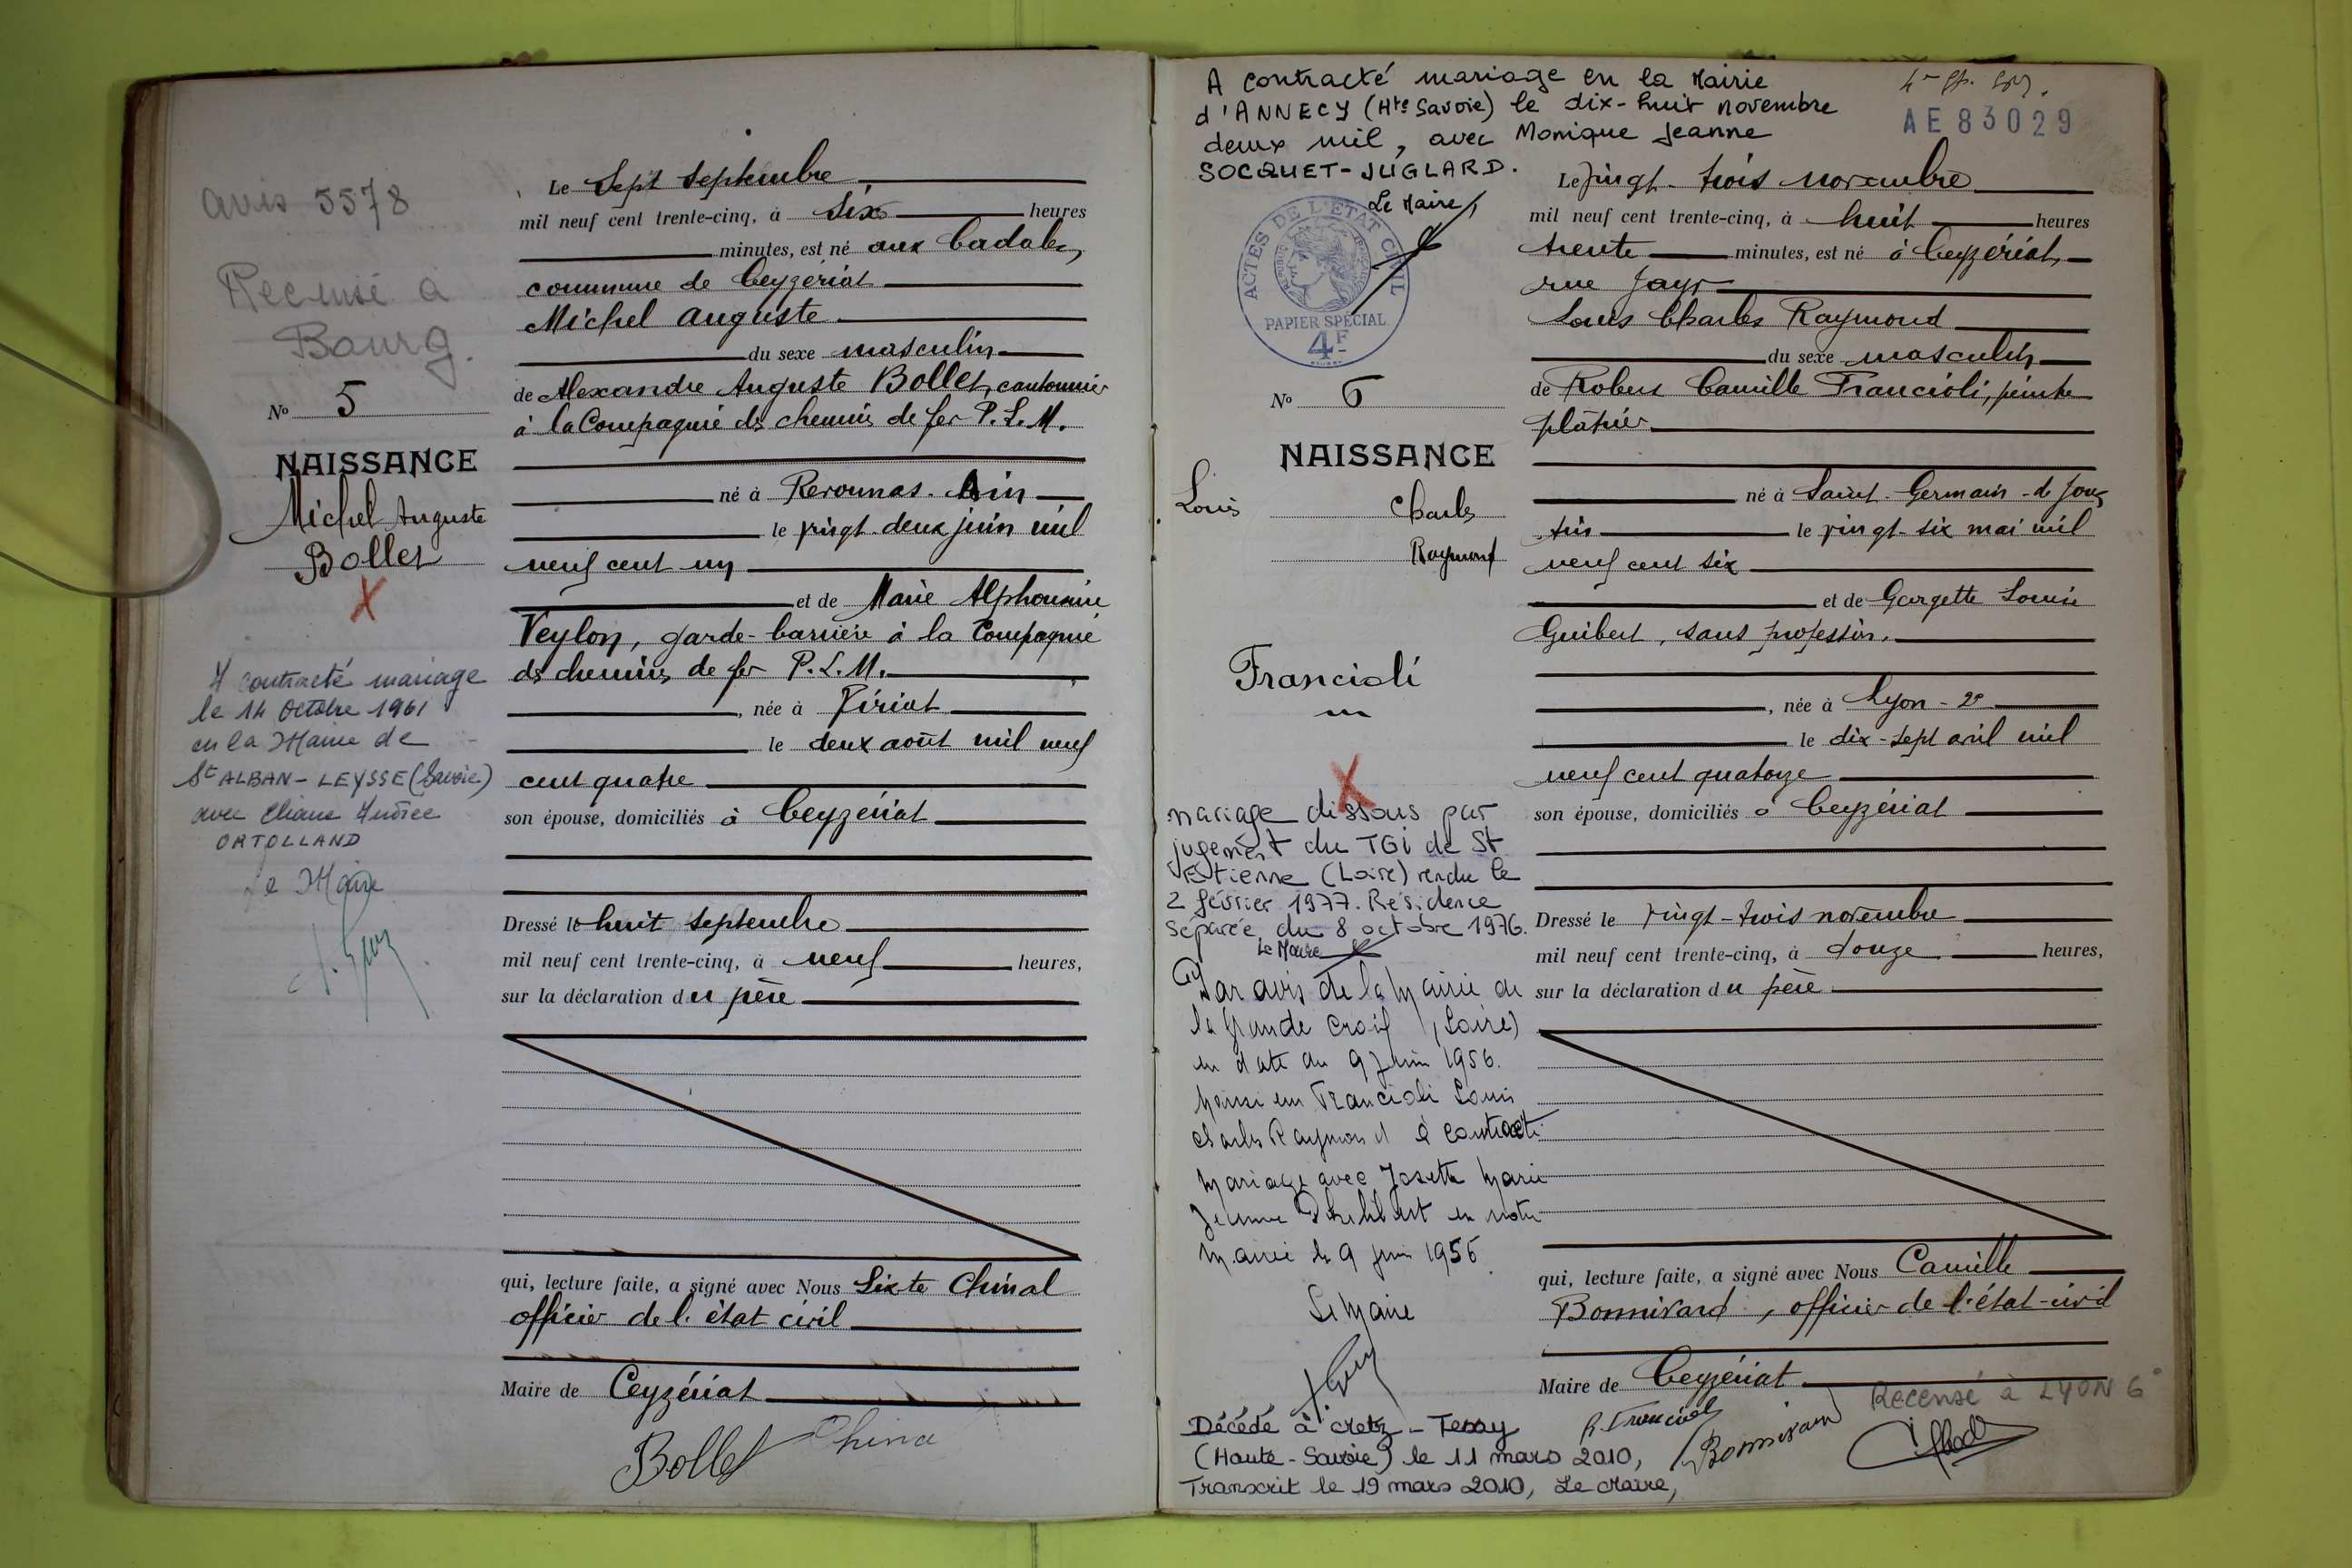 avis 5578
Recensé à
Bourg.
Nº 5
NAISSANCE
Michel Auguste
Bollet
X
A contracté mariage
le 14 Octobre 1961
en la Mairie de
St ALBAN-LEYSSE (Savoie)
avec Eliane Andrée
ORTOLLAND
Le Maire
Le Sept septembre
mil neuf cent trente-cinq, à six heures
minutes, est né aux Cadales,
commune de Ceyzériat
Michel Auguste
du sexe masculin
de Alexandre Auguste Bollet, cantonnier
à la Compagnie des chemins de fer P.L.M.
né à Peronnas. Ain
le vingt-deux juin mil
neuf cent un
et de Marie Alphonsine
Veylon, garde-barrière à la Compagnie
des chemins de fer P.L.M.
, née à Viriat
le deux août mil neuf
cent quatre
son épouse, domiciliés à Ceyzériat
Dressé le huit septembre
mil neuf cent trente-cinq, à neuf heures,
sur la déclaration du père
qui, lecture faite, a signé avec Nous Sixte Chinal
officier de l'état civil
Maire de Ceyzériat
Bollet
China
A contracté mariage en la Mairie
d'ANNECY (Hte Savoie) le dix-huit novembre
deux mil, avec Monique Jeanne
SOCQUET-JUGLARD.
Le Maire,
AE83029
ACTES DE L'ETAT CIVIL
PAPIER SPECIAL
4F
Nº 6
NAISSANCE
Louis Charles
Raymond
Francioli
X
mariage dissous par
jugement du TGI de St
Etienne (Loire) rendu le
2 février 1977. Résidence
séparée du 8 octobre 1976.
Le Maire
Par avis de la Mairie de
la Grande Croix (Loire)
en date du 9 Juin 1956.
Monsieur Francioli Louis
Charles Raymond a contracté
Mariage avec Josette Marie
Jeanne en notre
Mairie le 9 juin 1956
Le Maire
Décédé à Metz-Tessy
(Haute-Savoie) le 11 mars 2010,
Transcrit le 19 mars 2010, Le Maire,
Le vingt-trois novembre
mil neuf cent trente-cinq, à huit heures
trente minutes, est né à Ceyzériat,
rue Jayr
Louis Charles Raymond
du sexe masculin
de Robert Camille Francioli, peintre
plâtrier
né à Saint-Germain-de-Joux
Ain le vingt-six mai mil
neuf cent six
et de Georgette Louise
Guibert, sans profession.
, née à Lyon-2e
le dix-sept avril mil
neuf cent quatorze
son épouse, domiciliés à Ceyzériat
Dressé le vingt-trois novembre
mil neuf cent trente-cinq, à douze heures,
sur la déclaration du père
qui, lecture faite, a signé avec Nous Camille
Bonnivard, officier de l'état-civil
Maire de Ceyzériat
Recensé à LYON 6e
R. Francioli
Bonnivard